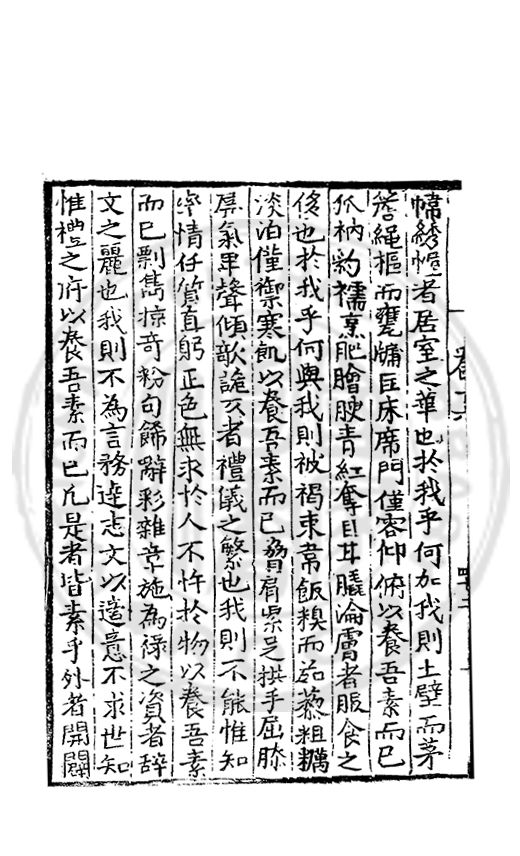 幃綉幄者居室之華也於我乎何加我則土壁而茅
簷繩樞而甕牖臣床席門僅容仰俯以養吾素而已
狐衲豹襦烹肥膾腴青紅奪目甘膬淪膚者服食之
侈也於我乎何與我則被褐束韋飯糗而茹蔬粗糲
淡泊僅禦寒飢以養吾素而已脅肩累足拱手屈膝
屏氣畢聲傾欹詭夊者禮儀之繁也我則不能惟知
率情任質直躬正色無求於人不忤於物以養吾素
而已剽雋掠奇粉句餙辭彩雜章施為祿之資者辞
文之麗也我則不為言務達志文以遣意不求世知
惟禮之府以養吾素而已凡是者皆素乎外者開闢